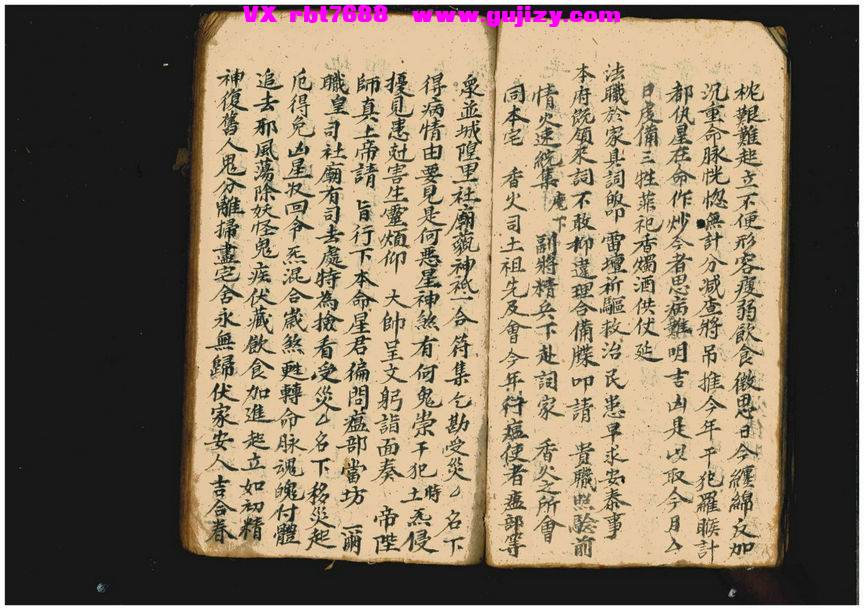 VX rbt7688 www.gujizy.com
枕艱難起立不便形容瘦弱飲食微思日今纏綿反加
沉重命脉恍惚無計分減查將吊推今年干犯羅睺計
都仇星在命作炒今者思病難明吉凶是以取今月厶
日虔備三牲菲祀香燭酒供仗延
法職於家具詞皈叩雷壇祈驅救治民患早求安泰事
本府既領來詞不敢抑違理合備牒叩請 貴職照驗前
情火速統集麾下副將精兵下赴詞家 香火之所會
同本宅 香火司土祖先及會今年行瘟使者瘟部等
眾並城隍里社廟觀神祇一合符集乞勘受災厶名下
得病情由要見是何惡星神煞有何鬼祟干犯時土炁侵
擾見患尅害生靈煩仰 大帥呈文躬詣面奏 帝陛
師真上帝請 旨行下本命星君徧問瘟部當坊 一爾
職皇司社廟有司去處特為撿看受災厶名下移災起
厄得免凶星退回令炁混合歲煞甦轉命脉魂魄付體
追去邪風蕩除妖怪鬼疾伏藏飲食加進起立如初精
神復舊人鬼分離掃盡宅舍永無歸伏家安人吉合眷